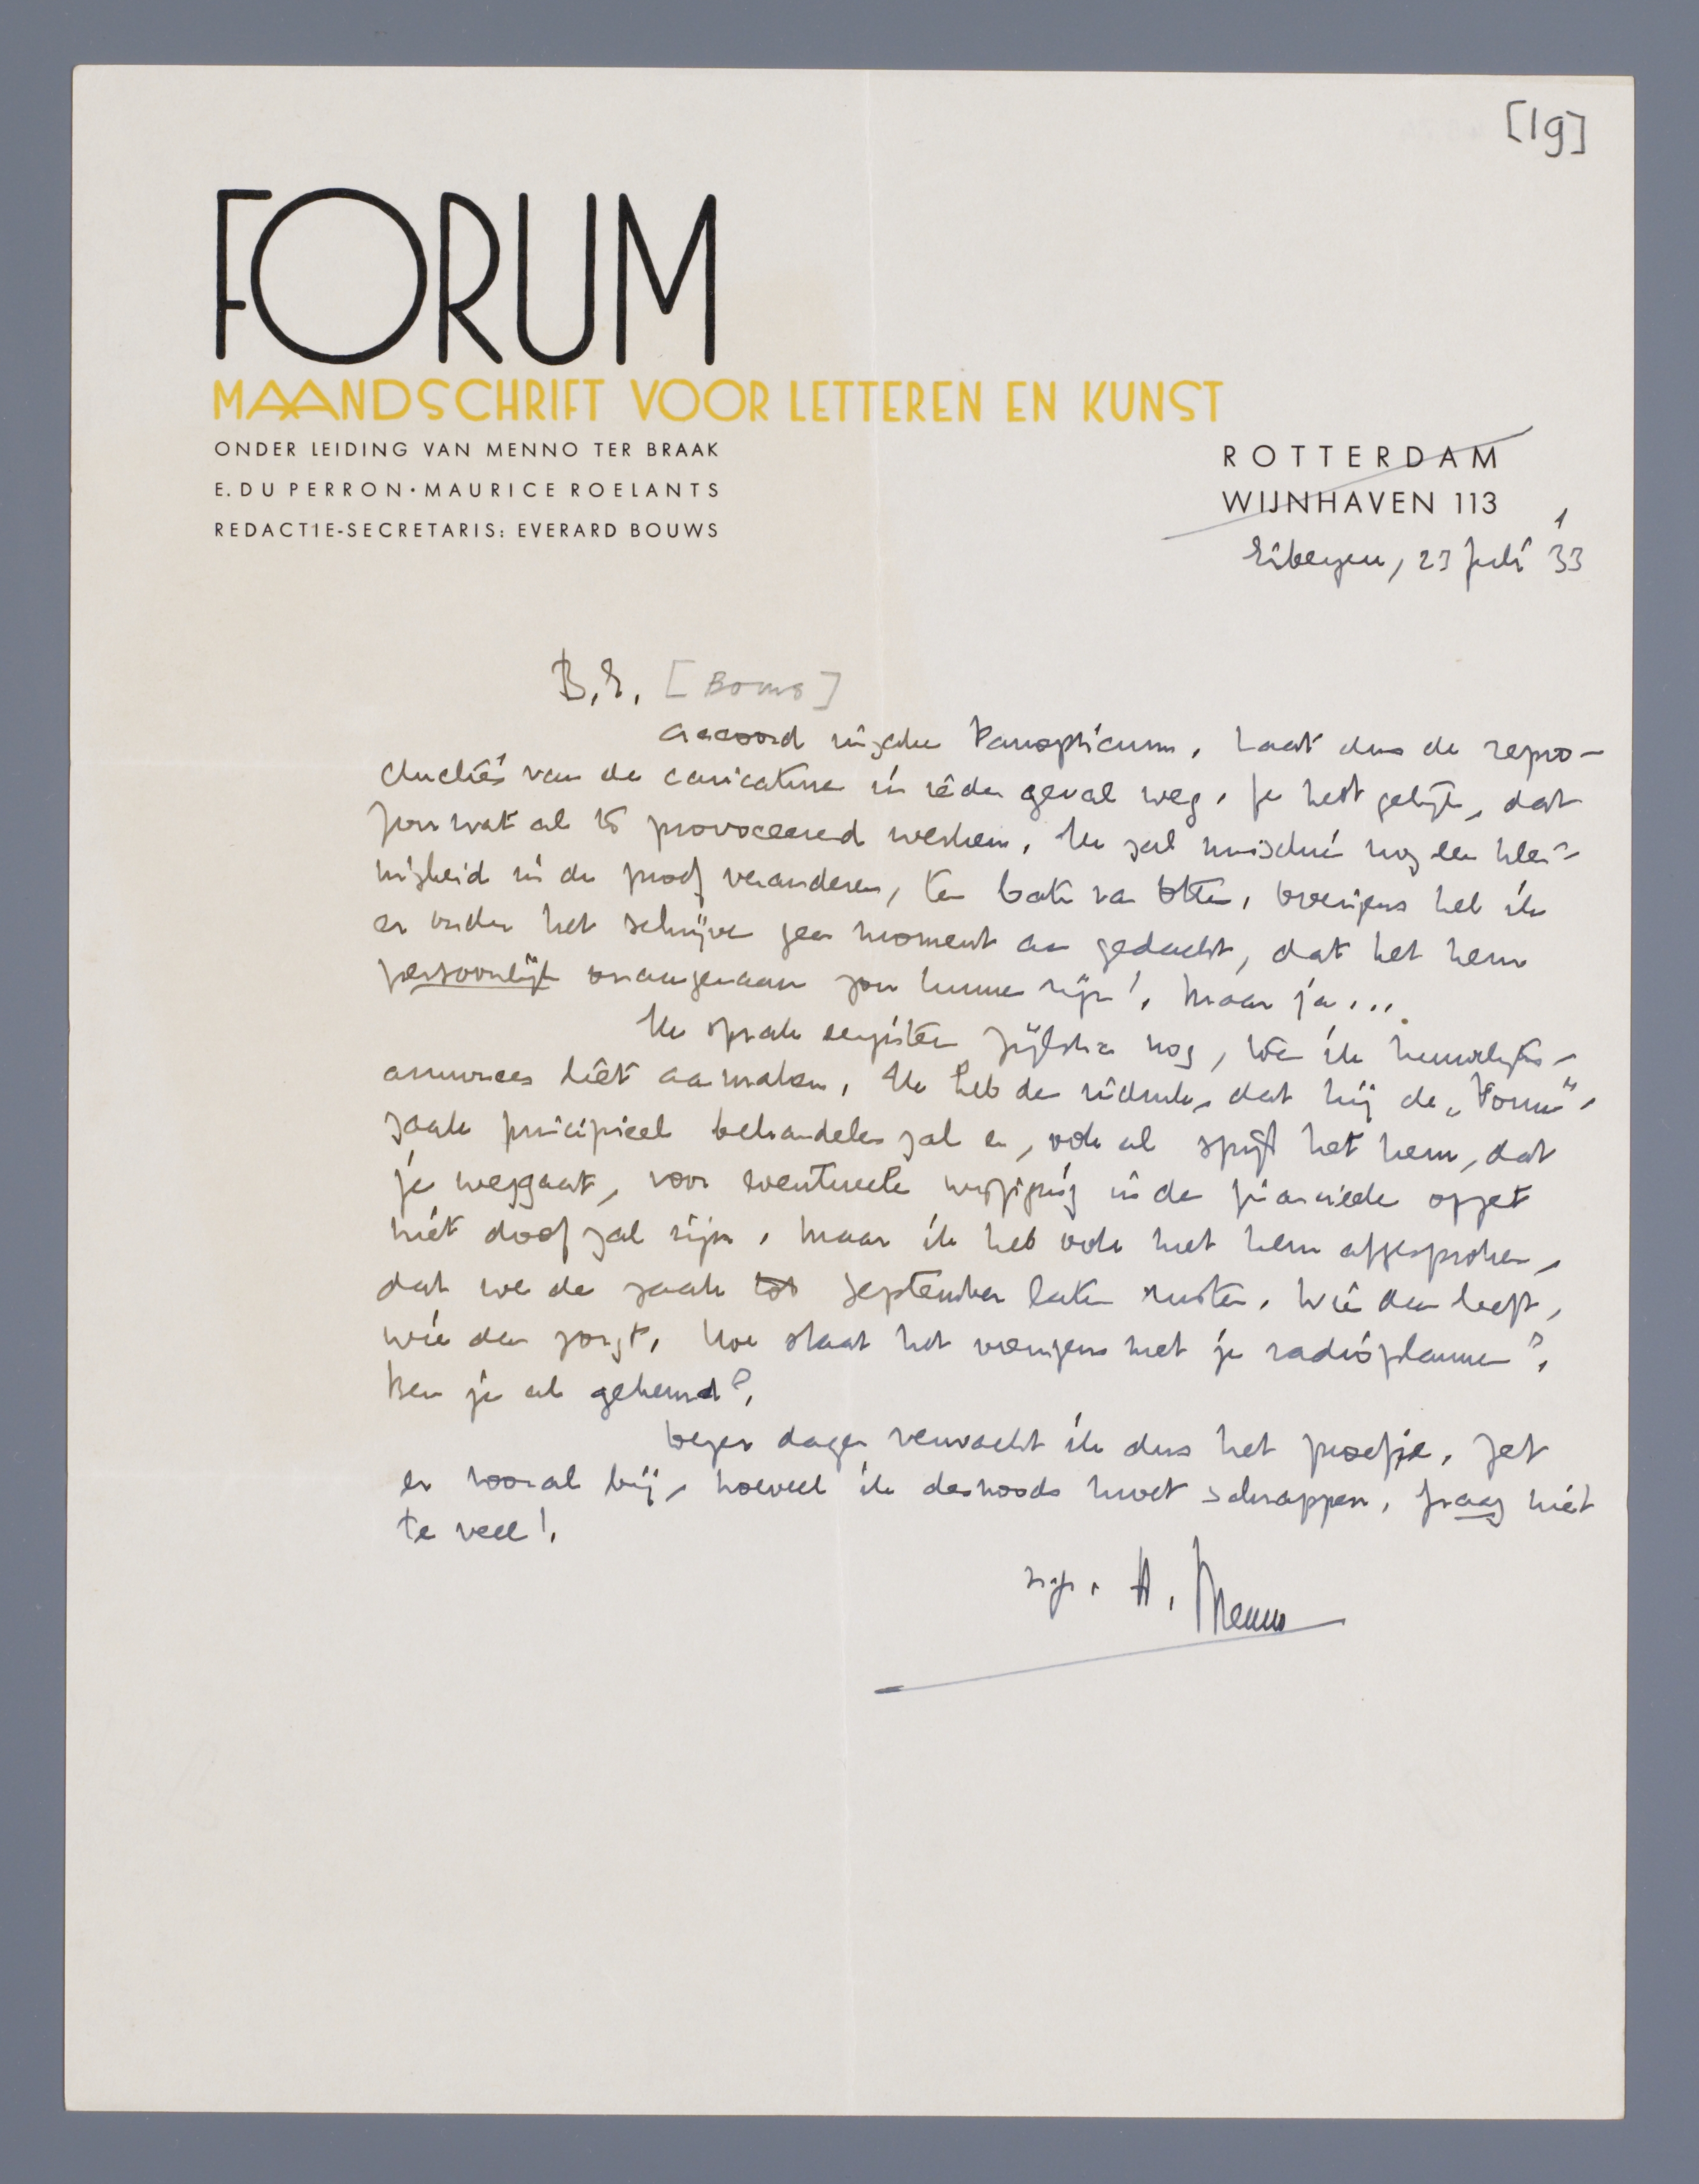 [19]
FORUM
MAANDSCHRIFT VOOR LETTEREN EN KUNST
ONDER LEIDING VAN MENNO TER BRAAK
E. DU PERRON · MAURICE ROELANTS
REDACTIE-SECRETARIS: EVERARD BOUWS
ROTTERDAM
WIJNHAVEN 113
Eibergen, 23 Juli '33
B.E. [Bouws]
Accoord inzake Panopticum. Laat dus de repro-
ductie van de caricatuur in ieder geval weg. Je hebt gelijk, dat
zou wat al te provoceerend werken. Ik zal misschien nog een klei-
nigheid in de proef veranderen, ten bate van Otten. Overigens heb ik
er onder het schrijven geen moment aan gedacht, dat het hem
persoonlijk onaangenaam zou kunnen zijn! Maar ja...
Ik sprak Zijlstra nog, toen ik huwelijks-
annonces liet aanmaken. Ik heb den indruk, dat hij de „Forum"-
zaak principieel behandelen zal en, ook al spijt het hem, dat
je weggaat, voor eventueele wijziging in de financieele opzet
niet doof zal zijn. Maar ik heb ook met hem afgesproken,
dat we de zaak tot September laten rusten. Wie dan leeft,
wie dan zorgt. Hoe staat het overigens met je radioplannen?
Ben je al gekeurd?
Dezer dagen verwacht ik dus het proefje. Zet
er vooral bij, hoeveel ik desnoods moet schrappen. Graag niet
te veel!
h. gr. A. Menno